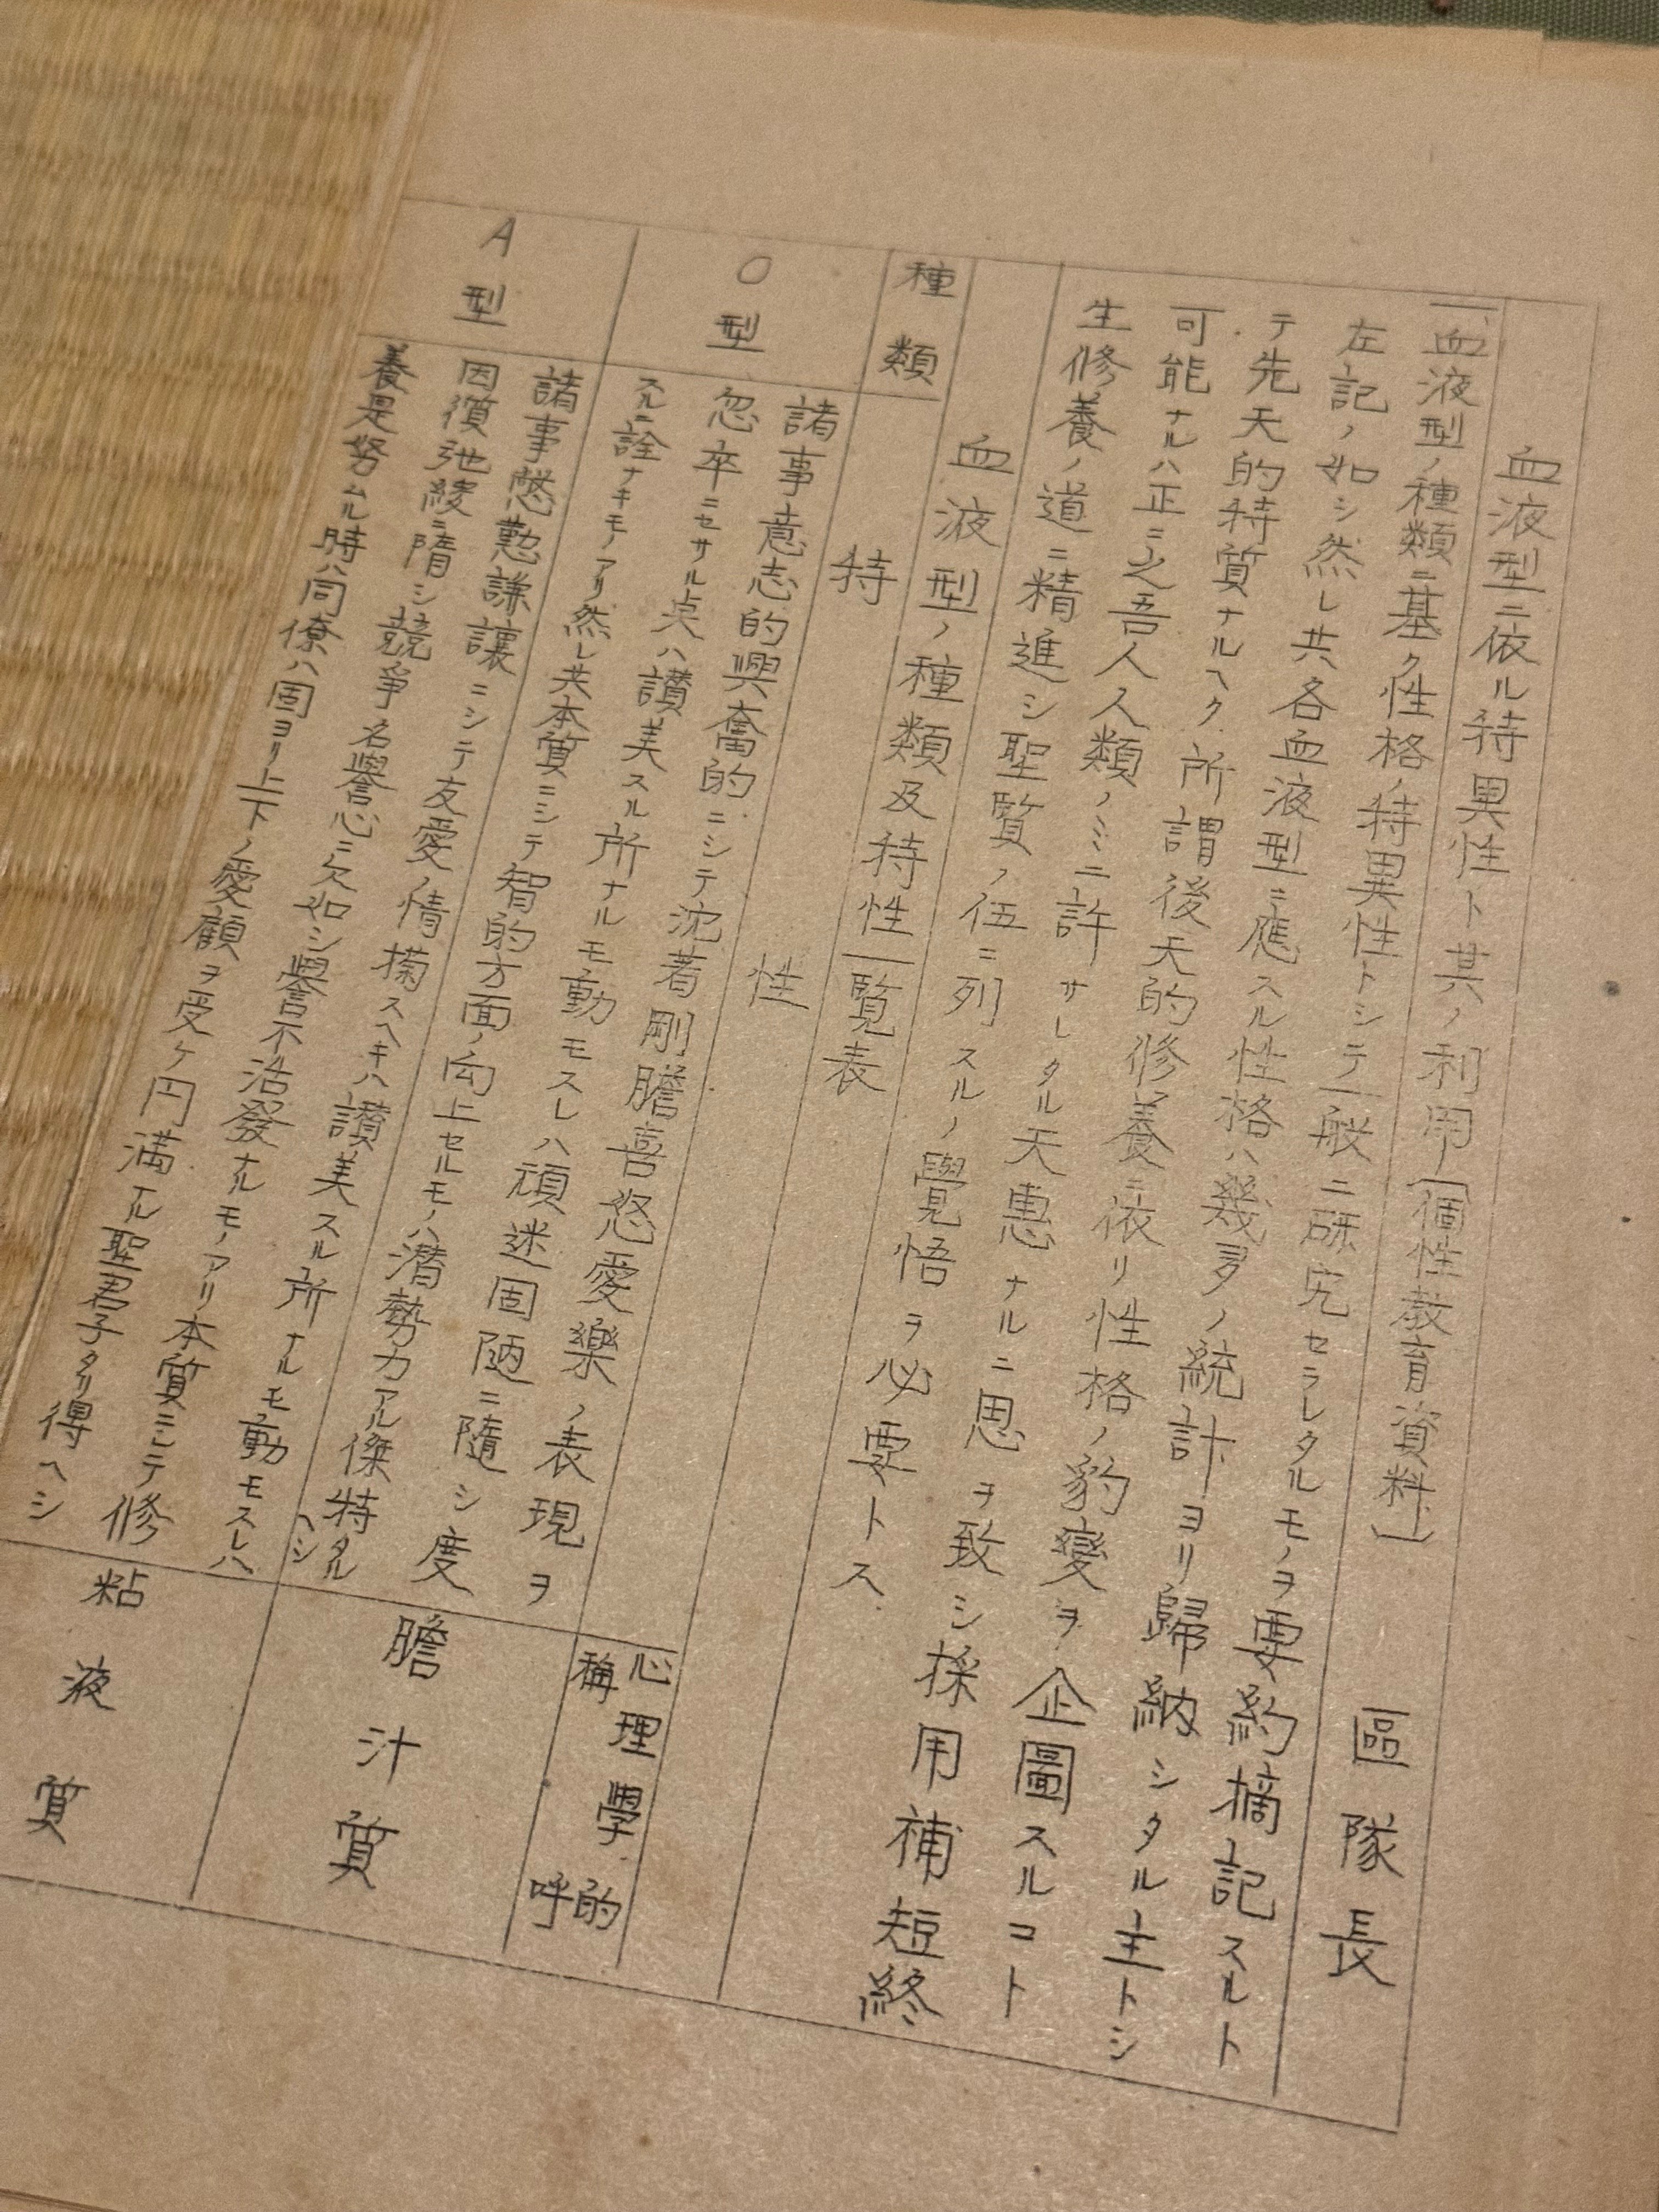 血液型ニ依ル特異性ト其ノ利用(個性教育資料)
區隊長
一、血液型ノ種類ニ基ク性格ノ特異性トシテ一般ニ研究セラレタルモノヲ要約摘記スルト
左記ノ如シ然レ共各血液型ニ應スル性格ハ幾多ノ統計ヨリ歸納シタル主トシ
テ先天的特質ナルヘク所謂後天的修養ニ依リ性格ノ豹變ヲ企圖スルコト
可能ナルハ正ニ之吾人人類ノミニ許サレタル天惠ナルニ思ヲ致シ採用補短終
生修養ノ道ニ精進シ聖賢ノ伍ニ列スルノ覺悟ヲ必要トス
血液型ノ種類及特性一覧表
種類
特性
心理學的
呼稱
O型
諸事意志的興奮的ニシテ沈着剛膽喜怒愛樂ノ表現ヲ
忽卒ニセサル点ハ讃美スル所ナルモ動モスレハ頑迷固陋ニ隨シ度
スルニ詮ナキモノアリ然レ共本質ニシテ智的方面ノ向上セルモノハ潜勢力アル傑特タル
ヘシ
膽汁質
A型
諸事慇懃謙讓ニシテ友愛ノ情掬スヘキハ讃美スル所ナルモ動モスレハ
因循弛緩ニ隋シ競爭名譽心ニ欠如シ譽不浩發ナルモノアリ本質ニシテ修
養是努ムル時ハ同僚ハ固ヨリ上下ノ愛顧ヲ受ケ円満ナル聖君子タリ得ヘシ
粘液質